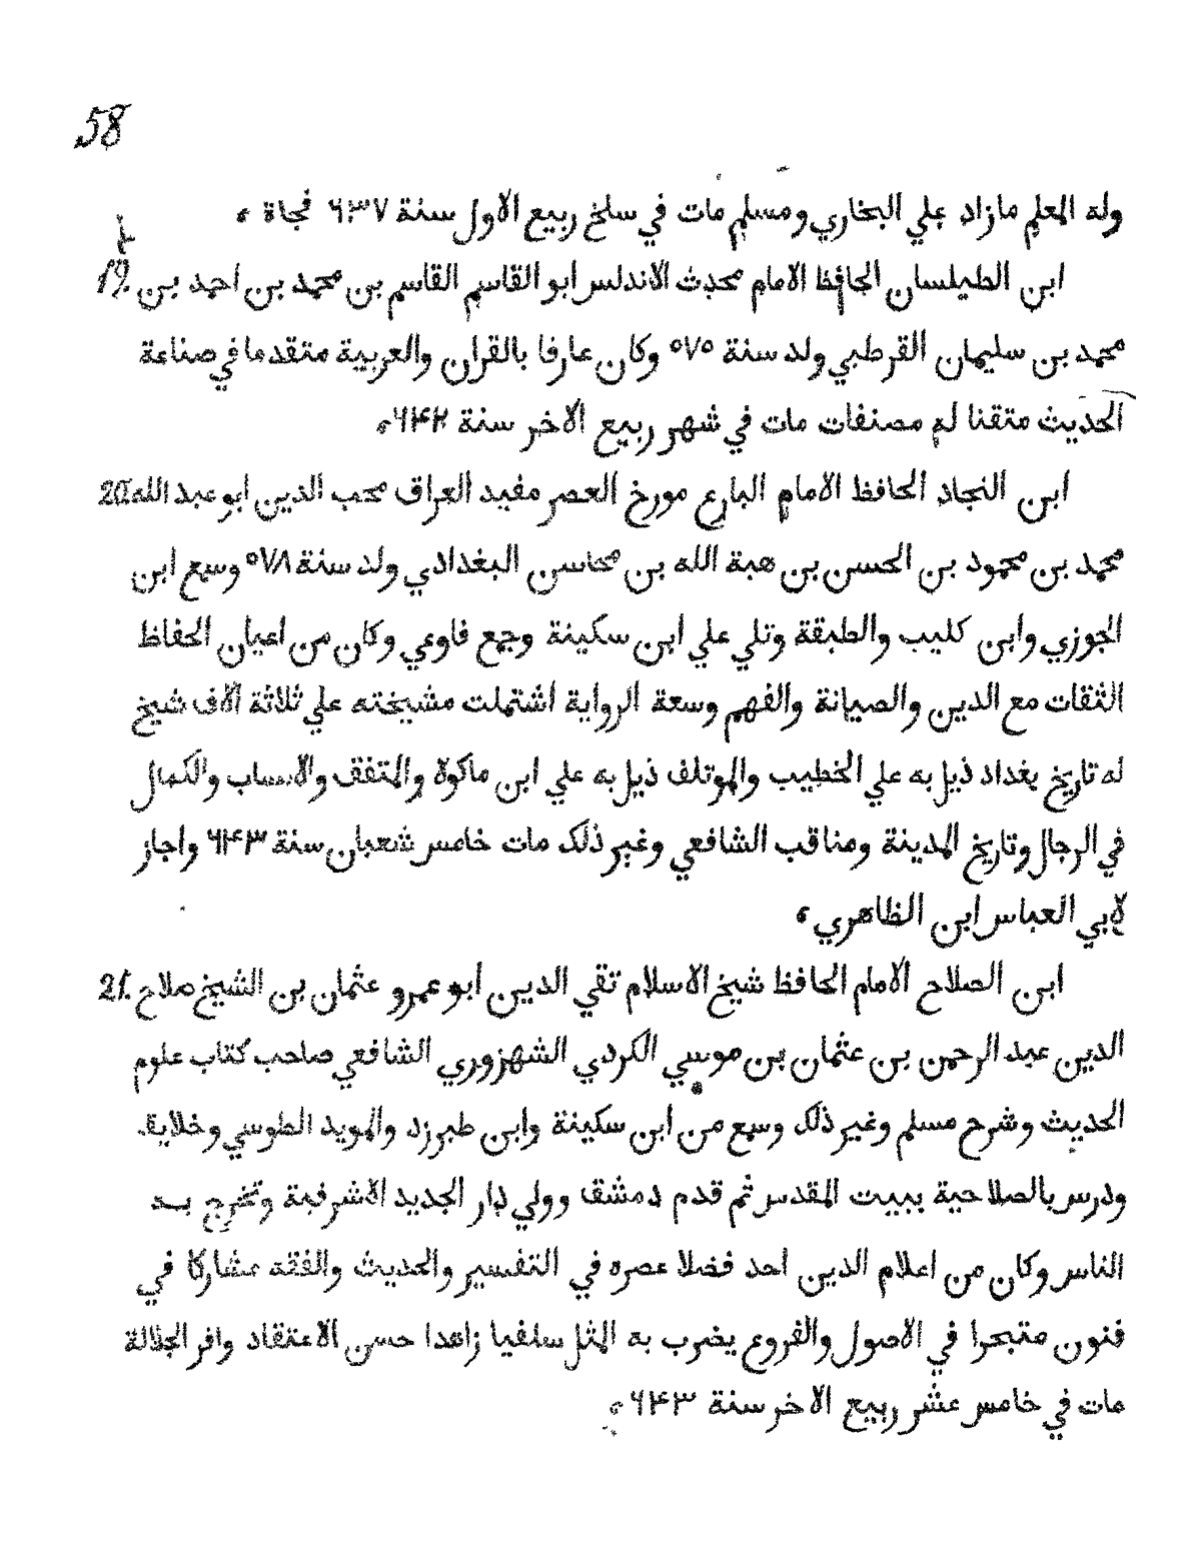 58
وله المعلم مازاد علي البخاري ومسلم مات في سلخ ربيع الاول سنة ٦٣٧ فجاة ،
19. ابن الطيلسان الحافظ الامام محدث الاندلس ابو القاسم القاسم بن محمد بن احمد بن
محمد بن سليمان القرطبي ولد سنة ٥٧٥ وكان عارفا بالقران والعربية متقدما في صناعة
الحديث متقنا له مصنفات مات في شهر ربيع الاخر سنة ٦٤٢ ،
20. ابن النجاد الحافظ الامام البارع مورخ العصر مفيد العراق محب الدين ابو عبد الله
محمد بن محمود بن الحسن بن هبة الله بن محاسن البغدادي ولد سنة ٥٧٨ وسمع ابن
الجوزي وابن كليب والطبقة وتلي علي ابن سكينة وجمع فاوعي وكان من اعيان الحفاظ
الثقات مع الدين والصيانة والفهم وسعة الرواية اشتملت مشيخته علي ثلاثة الاف شيخ
له تاريخ بغداد ذيل به علي الخطيب والموتلف ذيل به علي ابن ماكولا والمتفق والانساب والكمال
في الرجال وتاريخ المدينة ومناقب الشافعي وغير ذلك مات خامس شعبان سنة ٦٤٣ واجاز
لابي العباس ابن الظاهري ،
21. ابن الصلاح الامام الحافظ شيخ الاسلام تقي الدين ابو عمرو عثمان بن الشيخ صلاح
الدين عبد الرحمن بن عثمان بن موسي الكردي الشهزوري الشافعي صاحب كتاب علوم
الحديث وشرح مسلم وغير ذلك وسمع من ابن سكينة وابن طبرزد والمويد الطوسي وخلايق
ودرس بالصلاحية ببيت المقدس ثم قدم دمشق وولي دار الجديد الاشرفية وتخرج به
الناس وكان من اعلام الدين احد فضلا عصره في التفسير والحديث والفقه مشاركا في
فنون متبحرا في الاصول والفروع يضرب به المثل سلفيا زاهدا حسن الاعتقاد وافر الجلالة
مات في خامس عشر ربيع الاخر سنة ٦٤٣ ،